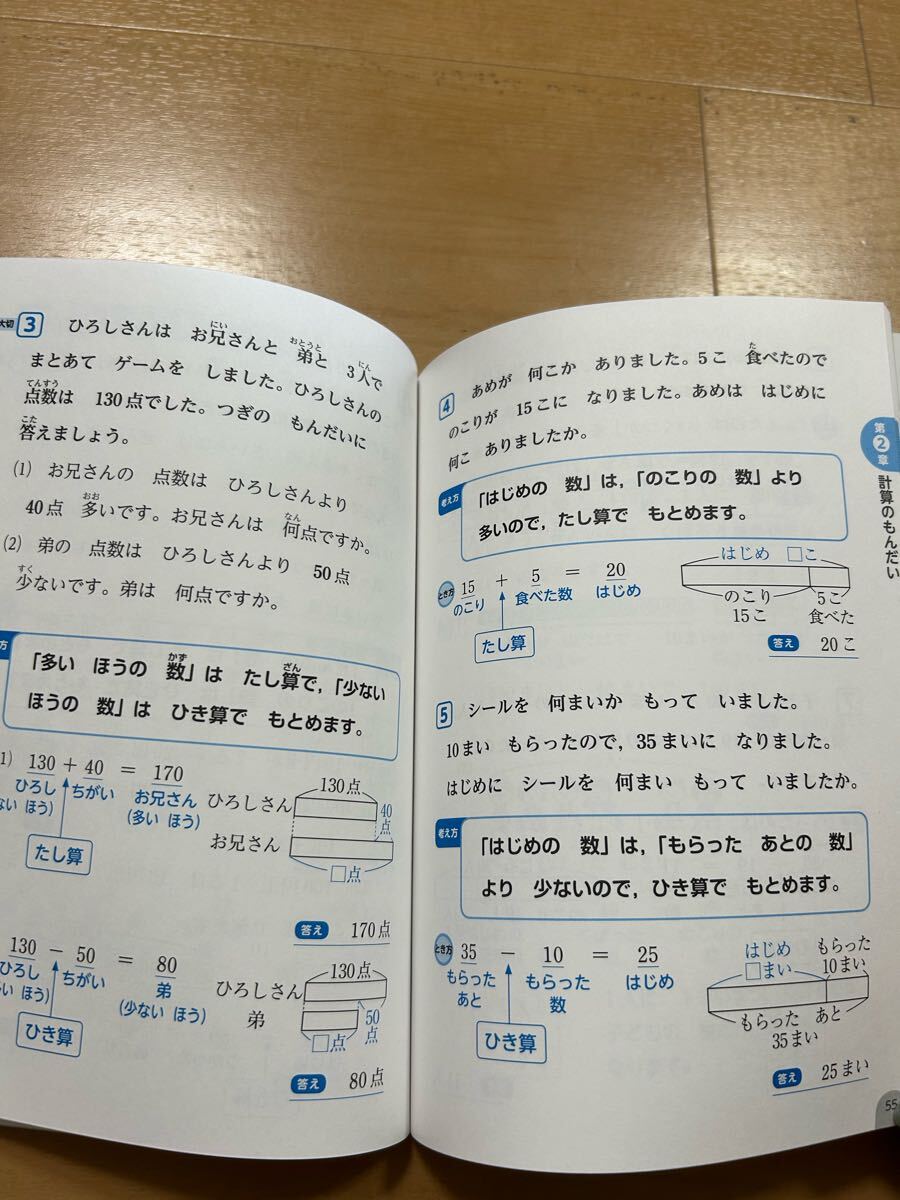 大切 3 ひろしさんは お兄さんと 弟と 3人で
まとあて ゲームを しました。ひろしさんの
点数は 130点でした。つぎの もんだいに
答えましょう。
(1) お兄さんの 点数は ひろしさんより
40点 多いです。お兄さんは 何点ですか。
(2) 弟の 点数は ひろしさんより 50点
少ないです。弟は 何点ですか。
方
「多い ほうの 数」は たし算で,「少ない
ほうの 数」は ひき算で もとめます。
1) 130 + 40 = 170
ひろし ちがい お兄さん
ない ほう) (多い ほう)
たし算
130点
ひろしさん
40点
お兄さん
□点
答え 170点
130 − 50 = 80
ひろし ちがい 弟
い ほう) (少ない ほう)
ひき算
130点
ひろしさん
弟
50点
□点
答え 80点
4 あめが 何こか ありました。5こ 食べたので
のこりが 15こに なりました。あめは はじめに
何こ ありましたか。
考え方
「はじめの 数」は,「のこりの 数」より
多いので,たし算で もとめます。
とき方 15 + 5 = 20
のこり 食べた数 はじめ
たし算
はじめ □こ
のこり 5こ
15こ 食べた
答え 20こ
5 シールを 何まいか もって いました。
10まい もらったので,35まいに なりました。
はじめに シールを 何まい もって いましたか。
考え方
「はじめの 数」は,「もらった あとの 数」
より 少ないので,ひき算で もとめます。
とき方 35 − 10 = 25
もらった もらった はじめ
あと 数
ひき算
はじめ もらった
□まい 10まい
もらった あと
35まい
答え 25まい
第2章 計算のもんだい
55